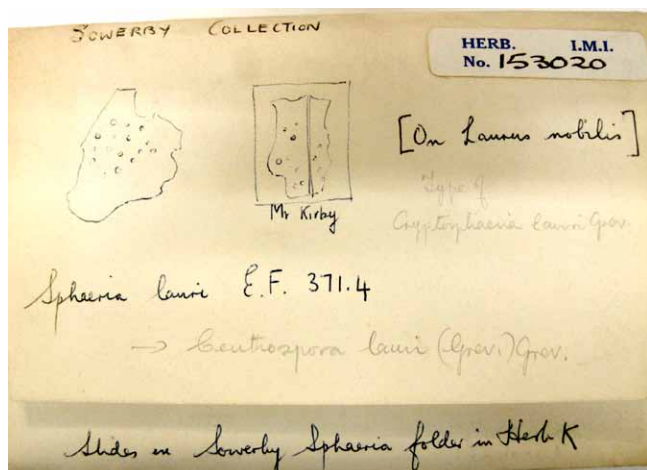 SOWERBY COLLECTION
HERB. I.M.I.
No. 153020
[On Laurus nobilis]
Mr Kirby
Type of
Cryptosphaeria lauri Grev.
Sphaeria lauri E.F. 371.4
→ Ceuthospora lauri (Grev.) Grev.
Slides in Sowerby Sphaeria folder in Herb K